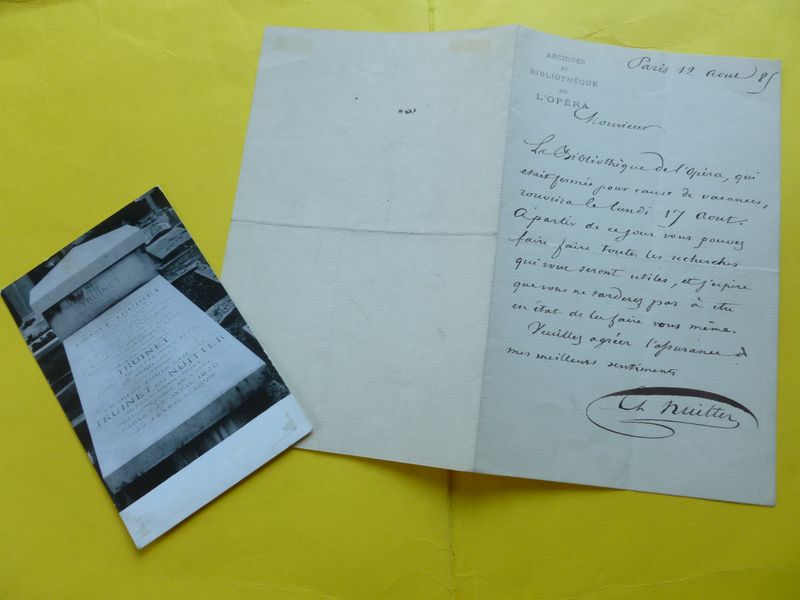 ARCHIVES
ET
BIBLIOTHÈQUE
DE
L'OPÉRA
Paris 12 aout 85
Monsieur
La Bibliothèque de l'Opéra, qui
etait fermée pour cause de vacances,
rouvrira le lundi 17 Aout.
A partir de ce jour vous pouvez
faire faire toutes les recherches
qui vous seront utiles, et j'espère
que vous ne tarderez pas à etre
en état de les faire vous même.
Veuillez agréer l'assurance de
mes meilleurs sentiments
Ch Nuitter
TRUINET
TRUINET
TRUINET DIT NUITTER
1899